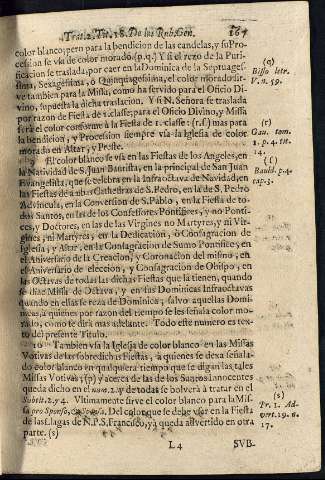 Trat. 2. Tit. 18. De las Rubricas. 164
color blanco; pero para la bendicion de las candelas, y su Pro-
cession se vsa de color morado. (p. q.) Y si el rezo de la Puri-
ficacion se traslada, por caer en la Dominica de la Septuages-
sima, Sexagessima, ò Quinquagessima, el color morado sir-
ve tambien para la Missa, como ha servido para el Oficio Di-
vino, supuesta la dicha traslacion. Y si N. Señora se traslada
por razon de Fiesta de 1. classe; para el Oficio Divino, y Missa
serà el color conforme à la Fiesta de 1. classe: (r.f) mas para
la bendicion, y Procession siempre vsa la Iglesia de color
morado en Altar, y Preste.
9 El color blanco se vsa en las Fiestas de los Angeles, en
la Natividad de S. Juan Bautista, en la principal de San Juan
Evangelista, que se celebra en la infraoctava de Navidad, en
las Fiestas de ambas Cathedras de S. Pedro, en la de S. Pedro
Advincula, en la Conversion de S. Pablo, en la Fiesta de to-
dos Santos, en las de los Confessores Pontifices, y no Ponti-
fices, y Doctores, en las de las Virgines no Martyres, y ni Vir-
gines, ni Martyres, en la Dedicacion, ò Consagracion de
Iglesia, y Altar, en la Consagracion de Sumo Pontifice, en
el Aniversario de la Creacion, y Coronacion del mismo, en
el Aniversario de eleccion, y Consagracion de Obispo, en
las Octavas de todas las dichas Fiestas que la tienen, quando
se dize Missa de Octava, y en sus Dominicas Infraoctavas
quando en ellas se reza de Dominica; salvo aquellas Domi-
nicas, à quienes por razon del tiempo se les señala color mo-
rado, como se dirà mas adelante. Todo este numero es tex-
to del presente Titulo.
10 Tambien vsa la Iglesia de color blanco en las Missas
Votivas de las sobredichas Fiestas, à quienes se dexa señala-
do color blanco en qualquiera tiempo que se digan las tales
Missas Votivas; (p) y acerca de las de los Santos Innocentes
queda dicho en el num. 2. y de todas se bolverà à tratar en el
Subtit. 2. y 4. Vltimamente sirve el color blanco para la Mis-
sa pro Sponso, & Sponsa. Del color que se debe vsar en la Fiesta
de las Llagas de N. P. S. Francisco, ya queda advertido en otra
parte. (s)
L 4 SVB-
(q)
Bisso letr.
V. n. 59.
(r)
Gau. tom.
1. p. 4. tit.
14.
(f)
Bauld. p. 4.
cap. 3.
(s)
Pr. 1. Ad-
vert. 19. n.
17.